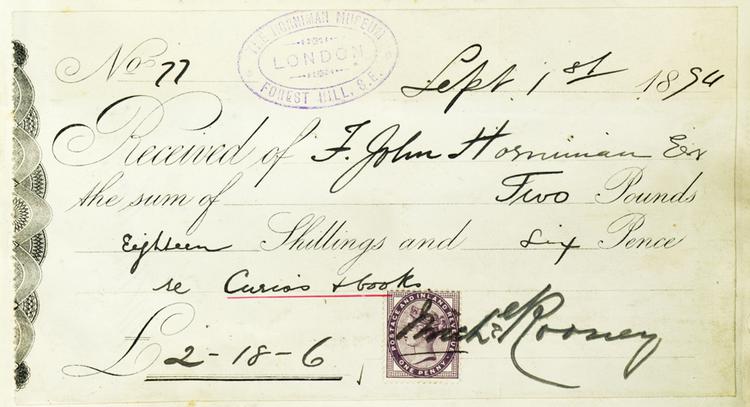 THE HORNIMAN MUSEUM
LONDON
FOREST HILL, S.E.
No 77
Sept. 1st 1894
Received of F. John Horniman Esr
the sum of Two Pounds
Eighteen Shillings and Six Pence
re Curios & books
POSTAGE AND INLAND REVENUE
ONE PENNY
Rooney
£ 2-18-6